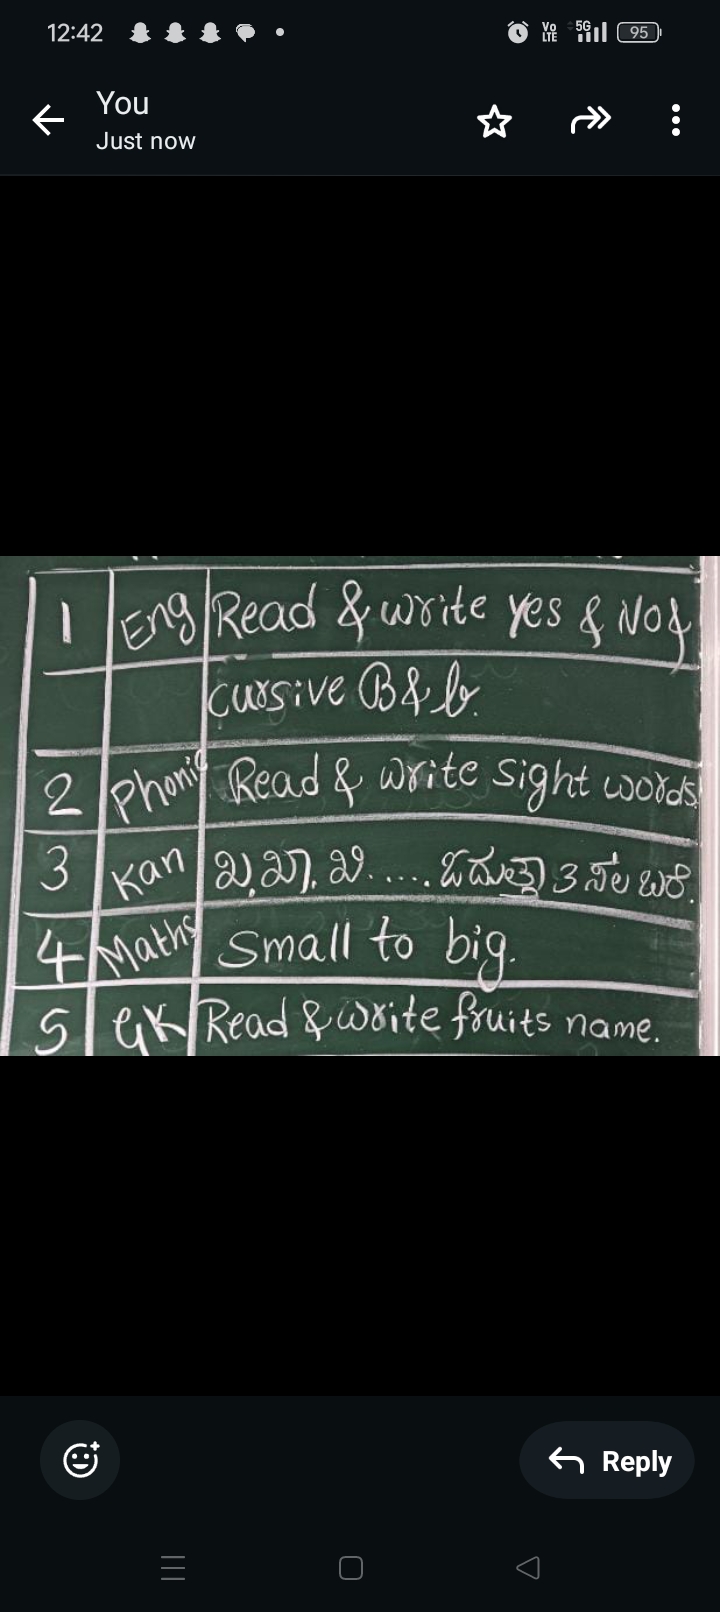 12:42
Vo LTE 5G 95
You
Just now
1 Eng Read & write Yes & No &
cursive B & b.
2 Phonic Read & write Sight words
3 Kan ಖ, ಖಾ, ಖಿ..... ಓದುತ್ತಾ 3 ಸಲ ಬರೆ.
4 Maths Small to big.
5 GK Read & write fruits name.
Reply